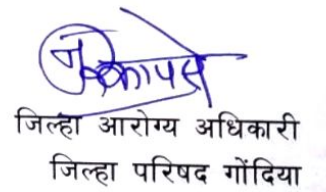 जिल्हा आरोग्य अधिकारी
जिल्हा परिषद गोंदिया